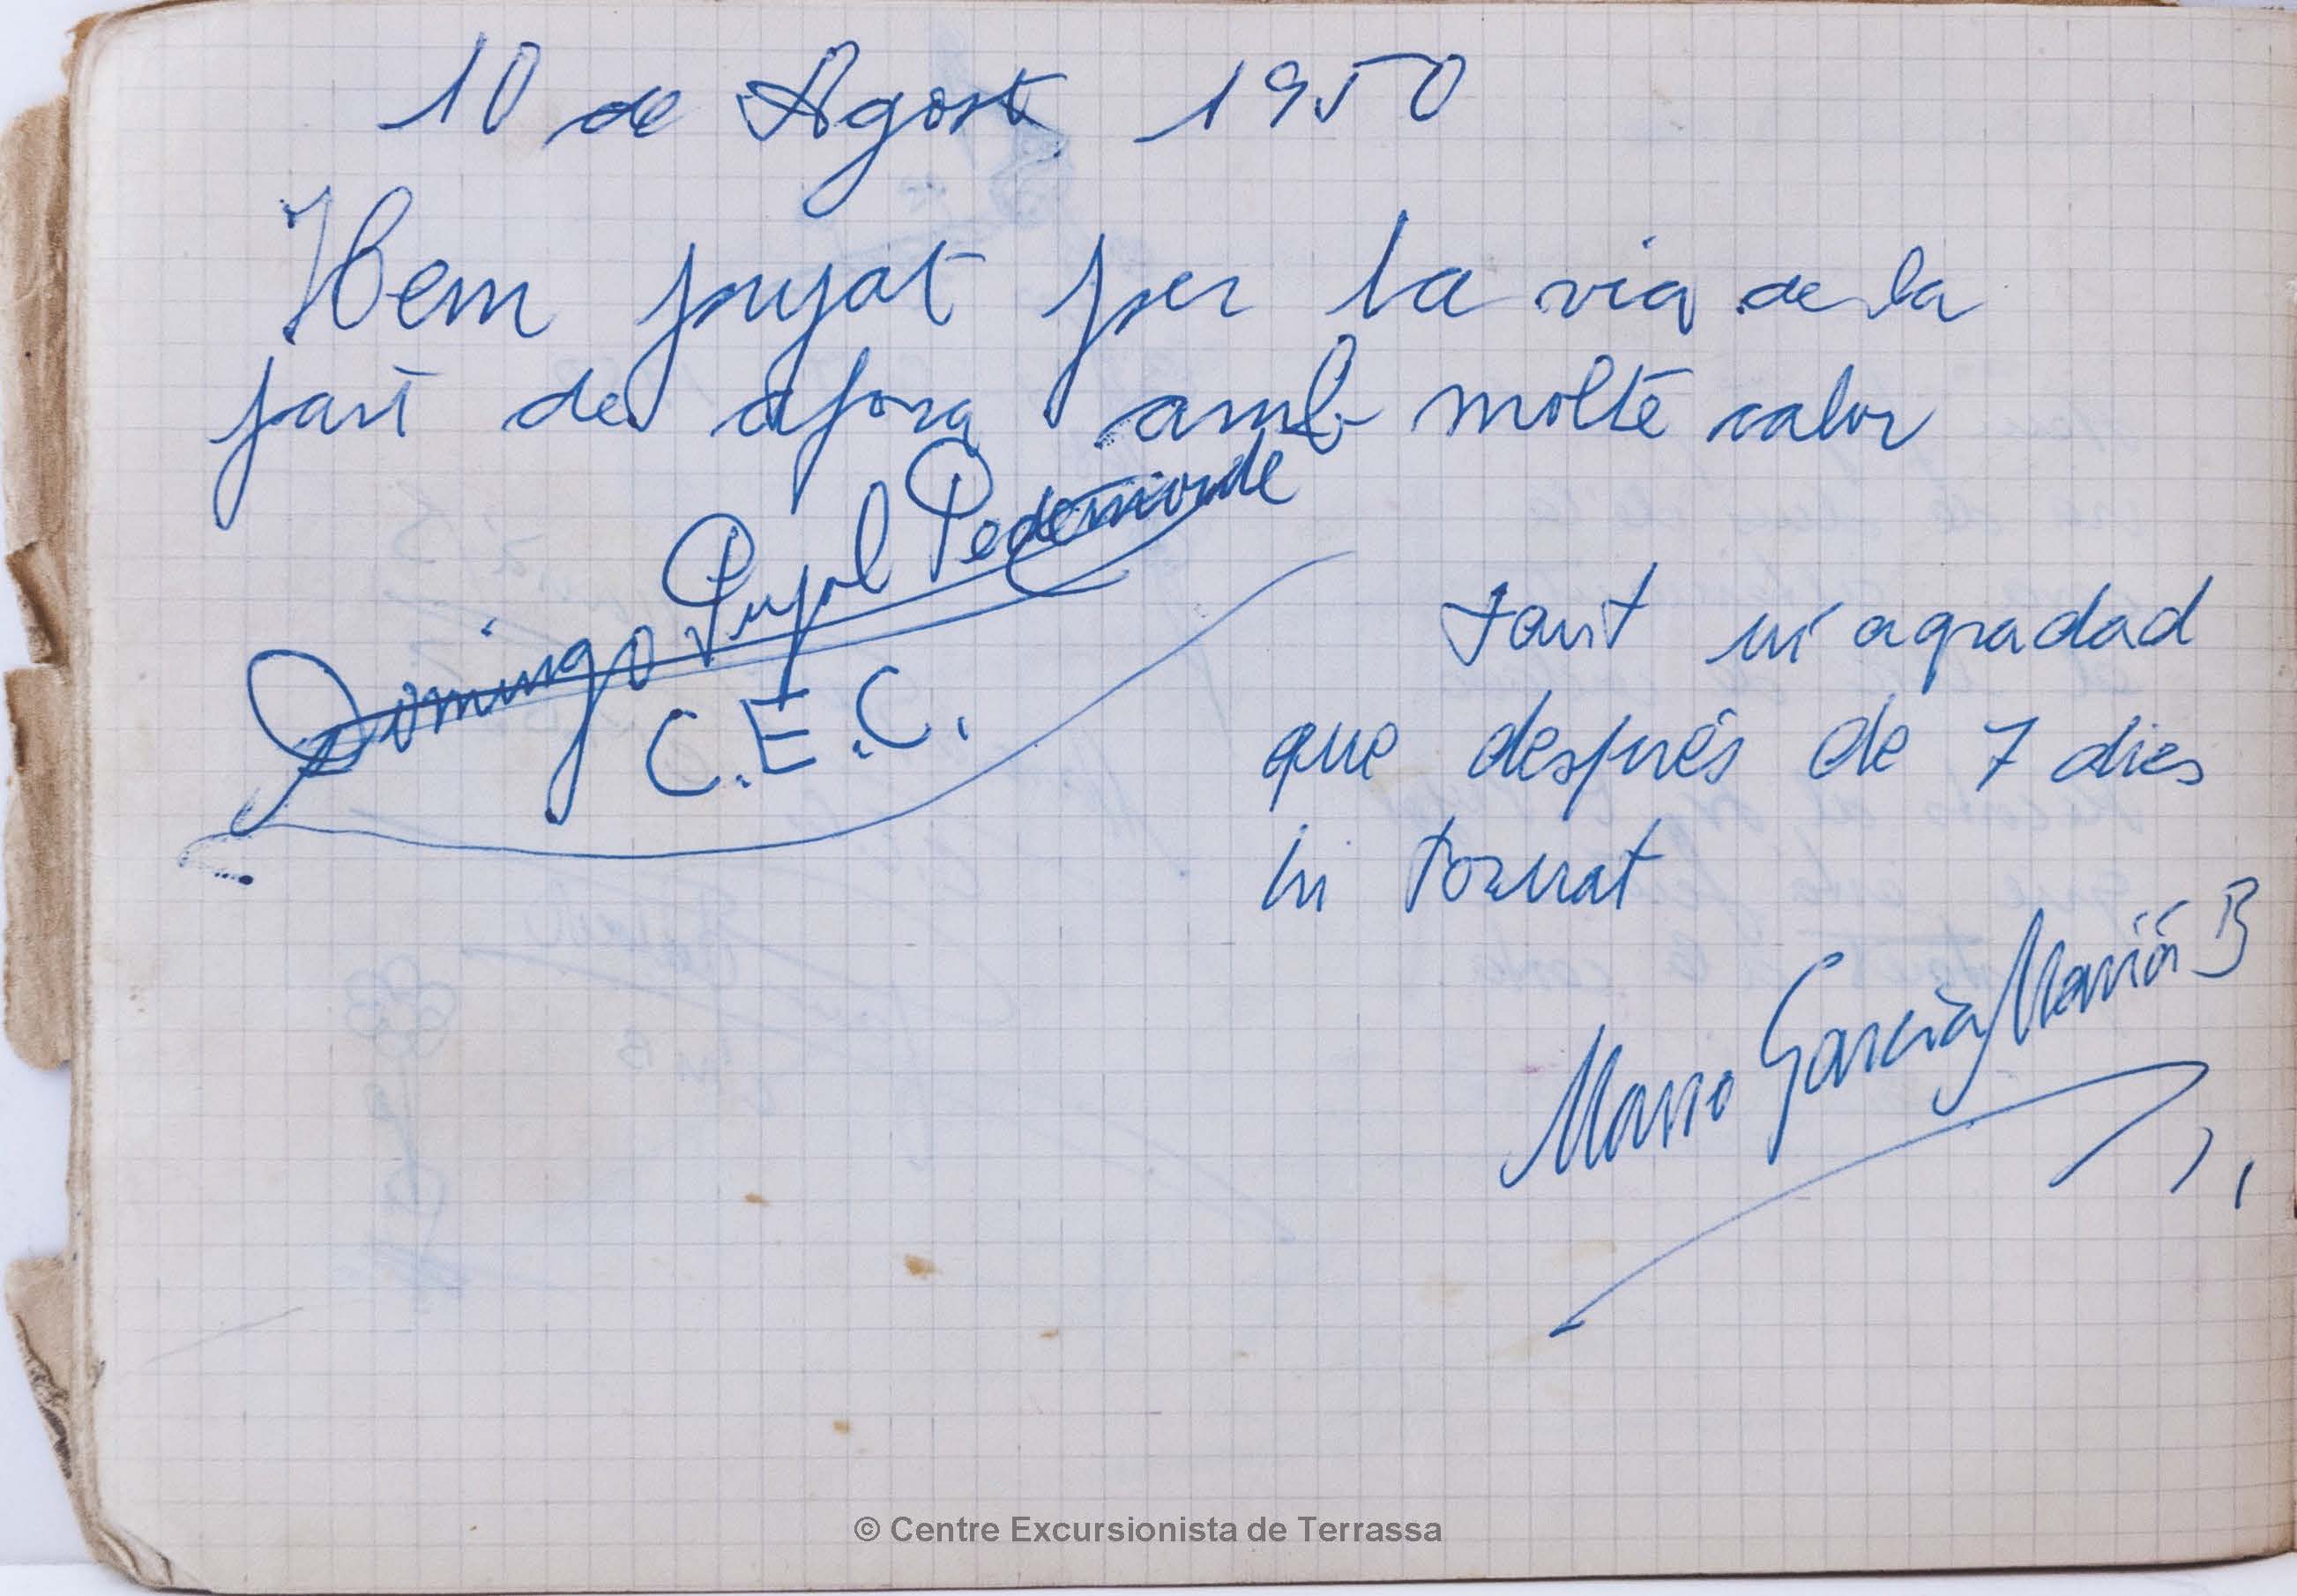 10 de Agost 1950
Hem pujat per la via de la
part de afora amb molte calor
Domingo Pujol Pedemonde
C.E.C.
tant m'agradad
que després de 7 dies
hi tornat
Mario Garcia Marió B
© Centre Excursionista de Terrassa